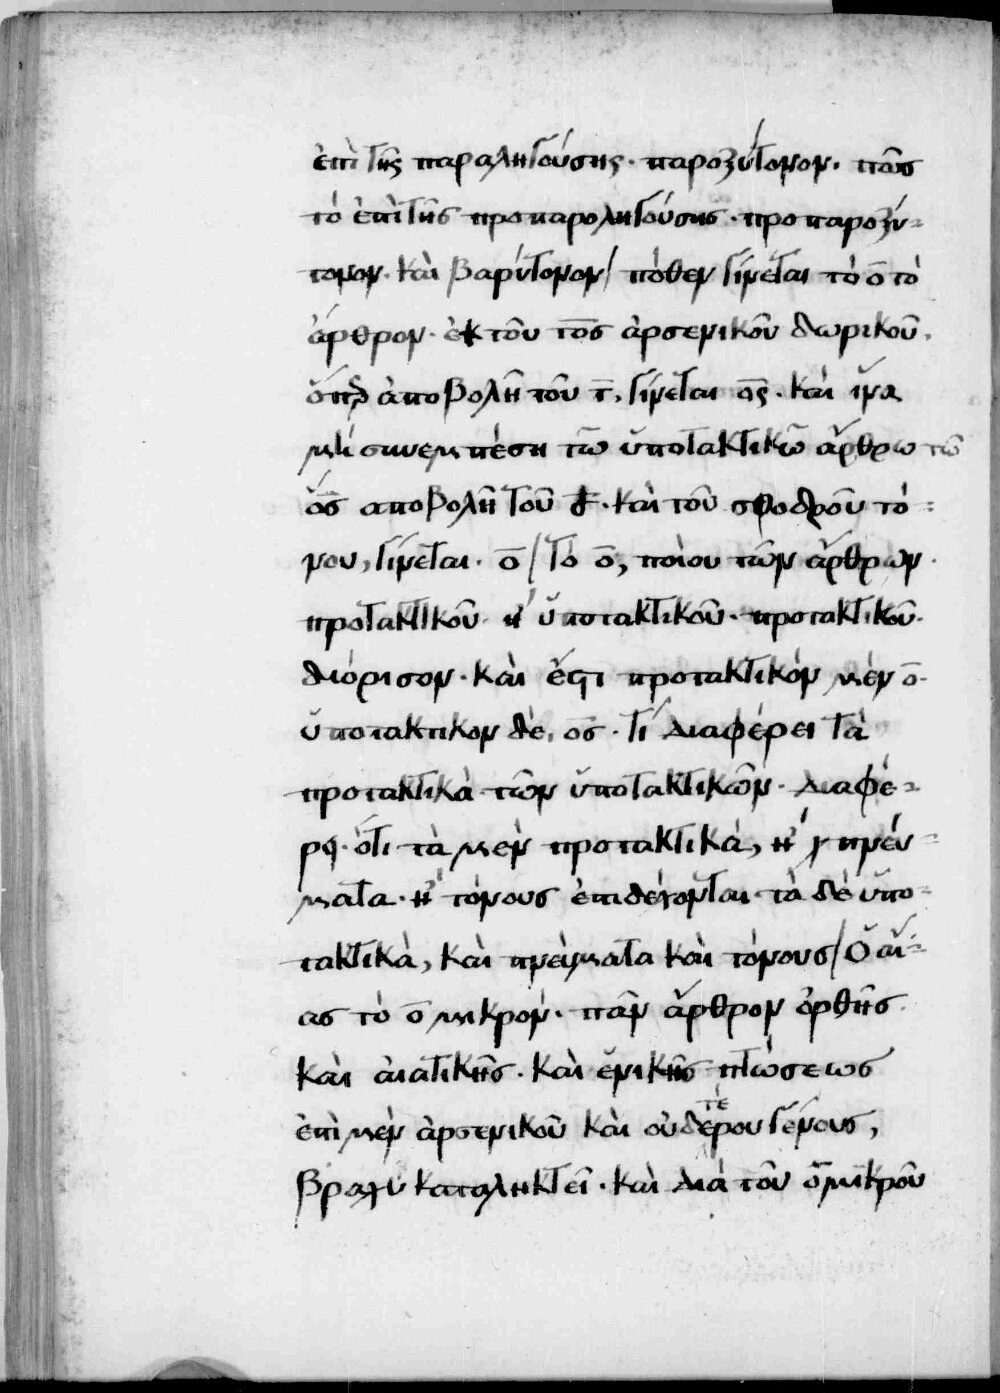 ἐπὶ τῆς παραληγούσης · παροξύτονον · ποῖος
τὸ ἐπὶ τῆς προπαραληγούσης · προπαροξύ-
τονον · καὶ βαρύτονον / πόθεν γίνεται τὸ ο τὸ
ἄρθρον · ἐκ τοῦ τος ἀρσενικοῦ δωρικοῦ,
ἀποβολῆ τοῦ τ, γίνεται ος · καὶ ἵνα
μὴ συνεμπέση τῶ ὑποτακτικῶ ἄρθρω τῶ
ὅς αποβολῆ τοῦ σ · καὶ τοῦ σφοδροῦ τό-
νου, γίνεται · ο / Τὸ ο, ποίου τῶν ἄρθρων ·
προτακτικοῦ ἢ ὑποτακτικοῦ · προτακτικοῦ ·
διόρισον · καὶ ἔστι προτακτικόν μέν ο ·
ὑποτακτικον δέ, ος · τί διαφέρει τὰ
προτακτικὰ τῶν ὑποτακτικῶν · διαφέ-
ρει · ὅτι τὰ μεν προτακτικά, ἢ πνεύ-
ματα · ἢ τόνους ἐπιδέχονται · τὰ δὲ ὑπο-
τακτικὰ, καὶ πνεύματα καὶ τόνους /
ας τὸ ο μικρόν · πᾶν ἄρθρον ὀρθῆς
καὶ αἰατικῆς · καὶ ἑνικῆς πτώσεως
ἐπὶ μὲν ἀρσενικοῦ καὶ οὐδετέρου γένους,
βραχυ καταληκτεῖ · καὶ διὰ τοῦ ο μικροῦ